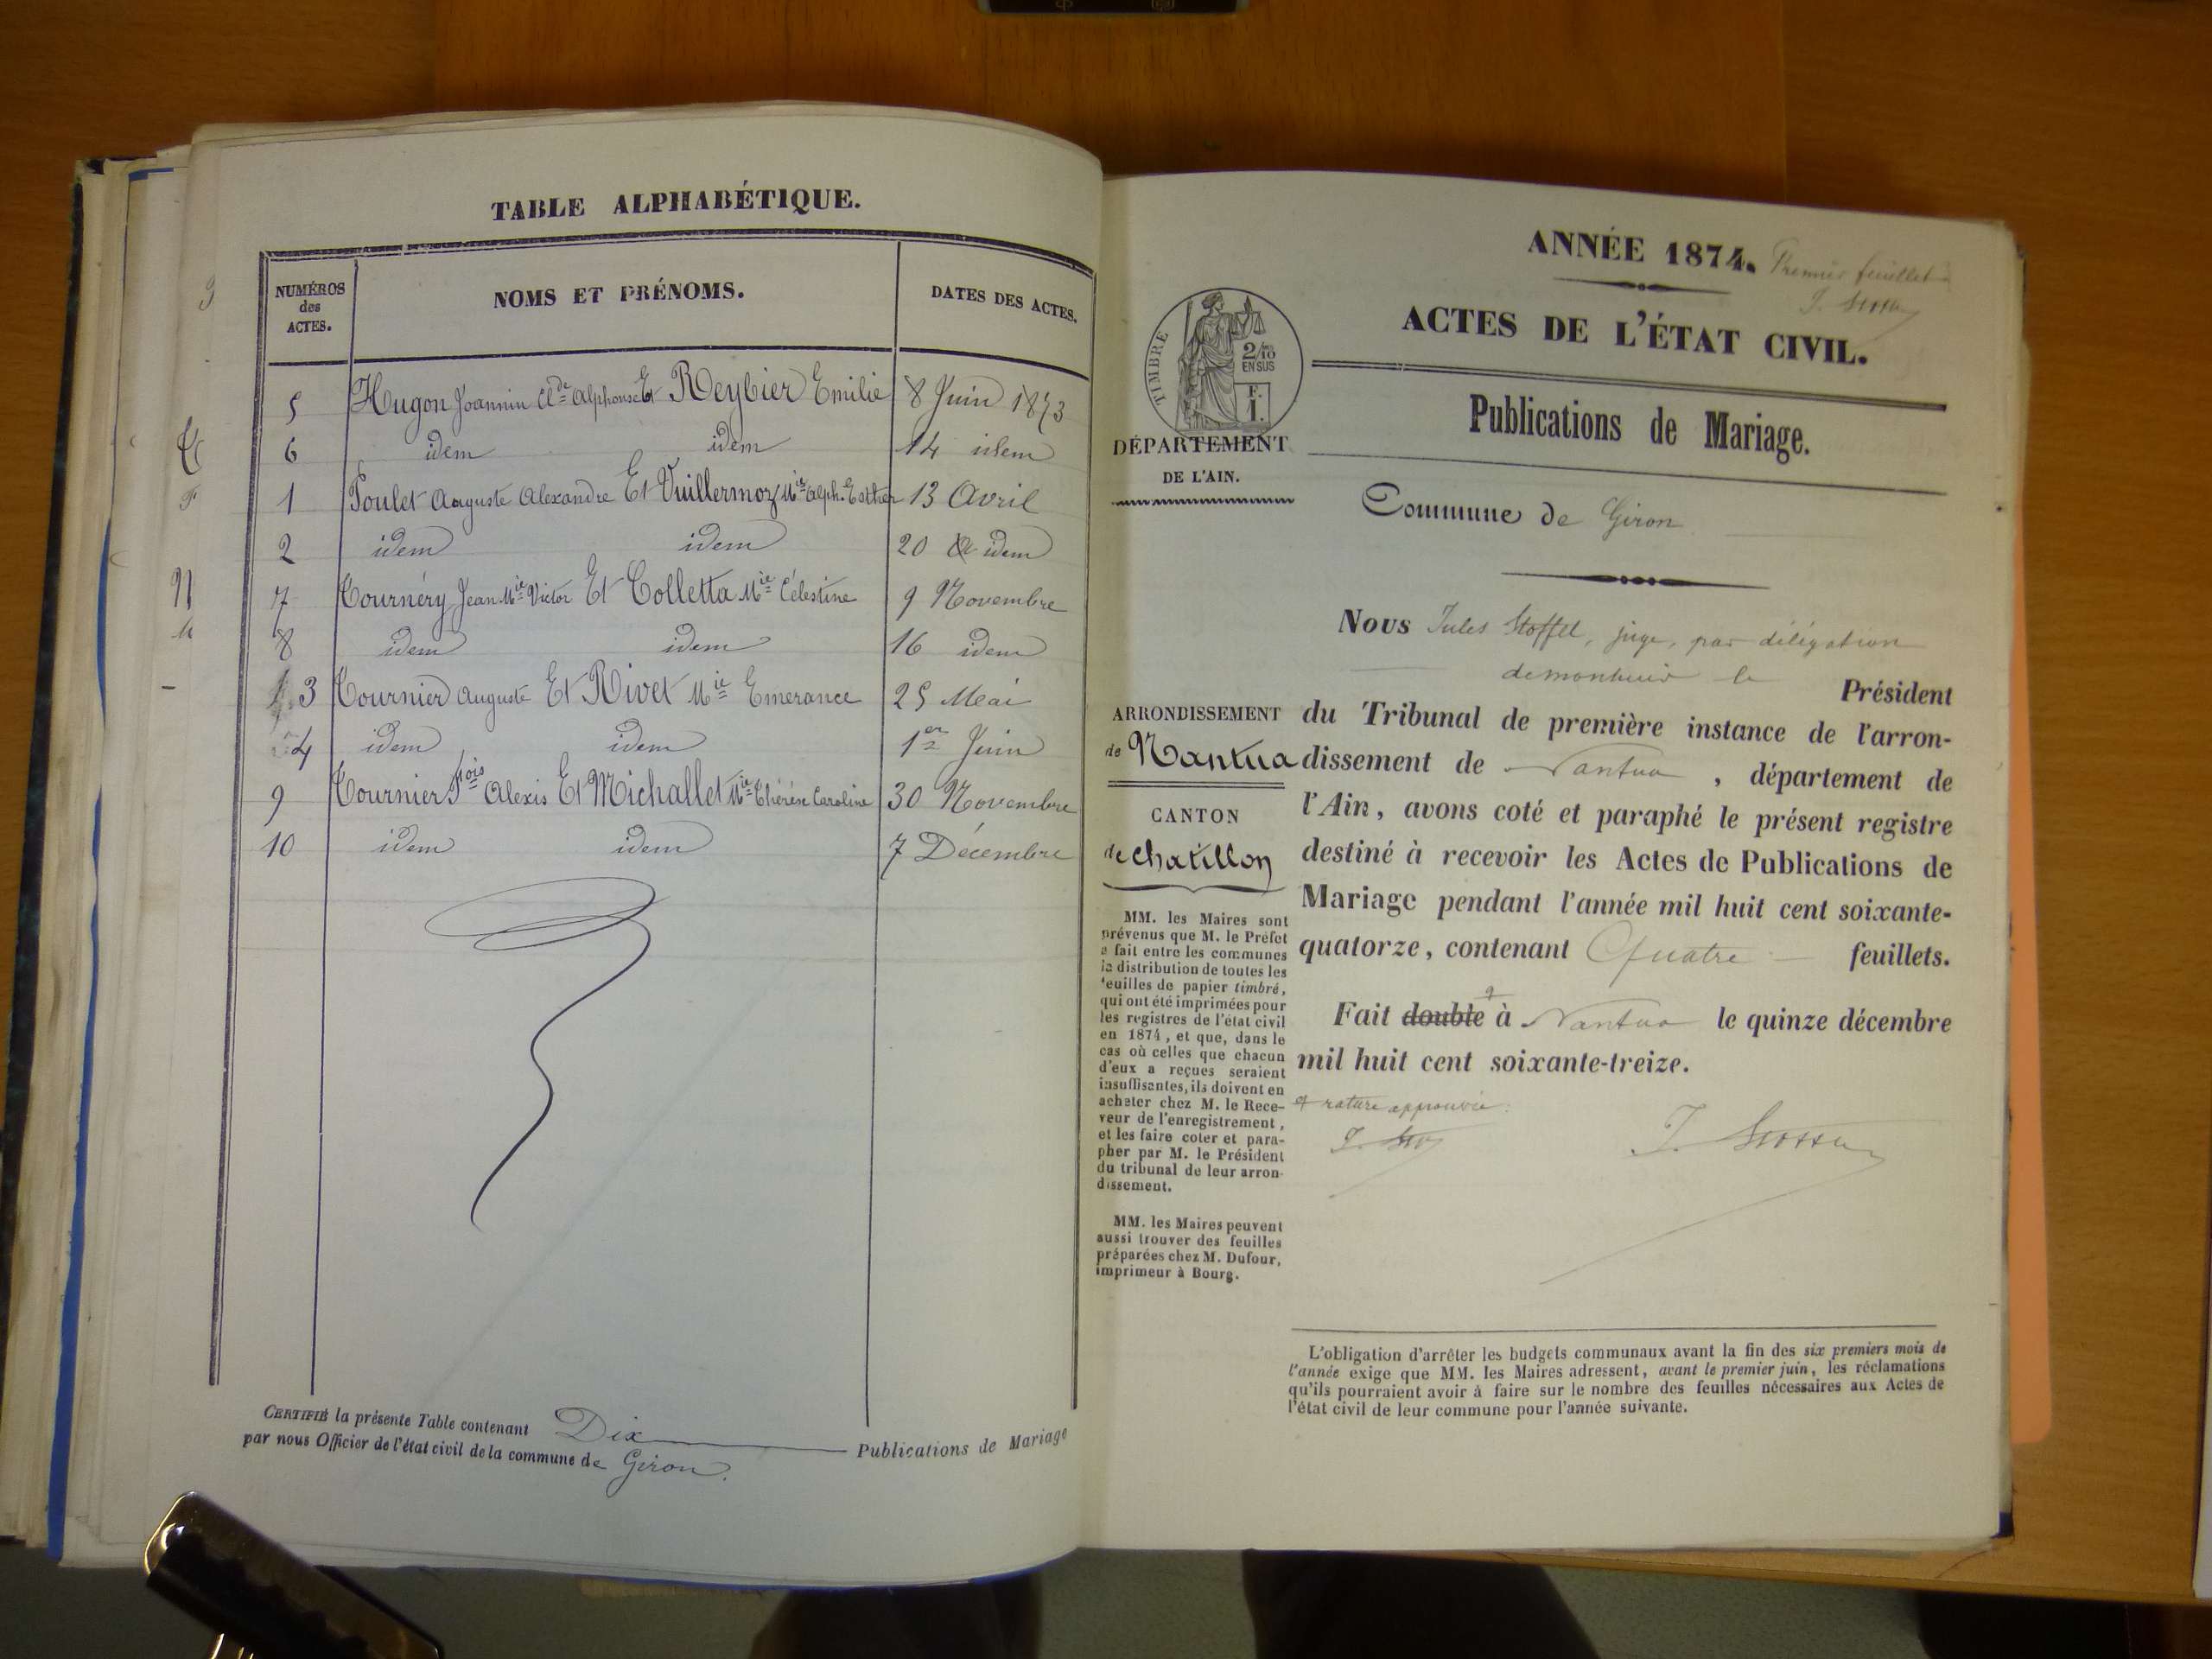 TABLE ALPHABÉTIQUE.
NUMÉROS
des
ACTES.
NOMS ET PRÉNOMS.
DATES DES ACTES.
5 Hugon Joannin Cl.de Alphonse Et Reybier Emilie 8 Juin 1873
6 idem idem 14 idem
1 Poulet Auguste Alexandre Et Vuillermoz Mie Alph. Esther 13 Avril
2 idem idem 20 idem
7 Tournéry Jean Mie Victor Et Colletta Mie Célestine 9 Novembre
8 idem idem 16 idem
3 Tournier Auguste Et Rivet Mie Emerance 25 Mai
4 idem idem 1er Juin
9 Tournier Fois Alexis Et Michallet Mie Thérèse Caroline 30 Novembre
10 idem idem 7 Décembre
CERTIFIÉ la présente Table contenant Dix Publications de Mariage
par nous Officier de l'état civil de la commune de Giron.
ANNÉE 1874.
Premier feuillet
ACTES DE L'ÉTAT CIVIL.
TIMBRE
2/10
EN SUS
F.
1.
Publications de Mariage.
DÉPARTEMENT
DE L'AIN.
Commune de Giron
Nous Jules Stoffel, juge, par délégation
de monsieur le Président
ARRONDISSEMENT
de Nantua
du Tribunal de première instance de l'arron-
dissement de Nantua, département de
CANTON
de Chatillon
l'Ain, avons coté et paraphé le présent registre
destiné à recevoir les Actes de Publications de
Mariage pendant l'année mil huit cent soixante-
quatorze, contenant Quatre feuillets.
Fait double à Nantua le quinze décembre
mil huit cent soixante-treize.
rature approuvée.
MM. les Maires sont
prévenus que M. le Préfet
a fait entre les communes
la distribution de toutes les
feuilles de papier timbré,
qui ont été imprimées pour
les registres de l'état civil
en 1874, et que, dans le
cas où celles que chacun
d'eux a reçues seraient
insuffisantes, ils doivent en
acheter chez M. le Rece-
veur de l'enregistrement,
et les faire coter et para-
pher par M. le Président
du tribunal de leur arron-
dissement.
MM. les Maires peuvent
aussi trouver des feuilles
préparées chez M. Dufour,
imprimeur à Bourg.
L'obligation d'arrêter les budgets communaux avant la fin des six premiers mois de
l'année exige que MM. les Maires adressent, avant le premier juin, les réclamations
qu'ils pourraient avoir à faire sur le nombre des feuilles nécessaires aux Actes de
l'état civil de leur commune pour l'année suivante.